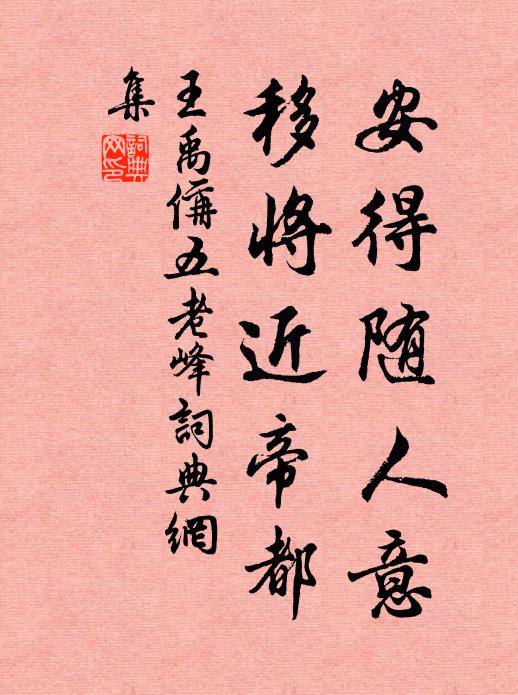 安得随人意
移將近帝都
王禹偁五老峰詞典網
集
詞典
网印